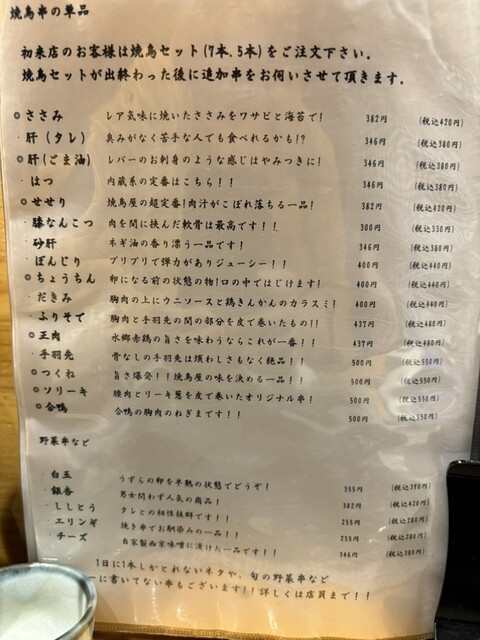 焼鳥串の単品
初来店のお客様は焼鳥セット(7本､5本)をご注文下さい。
焼鳥セットが出終わった後に追加串をお伺いさせて頂きます。
◎ささみ レア気味に焼いたささみをワサビと海苔で! 382円 (税込420円)
・肝(タレ) 臭みがなく苦手な人でも食べれるかも!? 346円 (税込380円)
◎肝(ごま油) レバーのお刺身のような感じはやみつきに! 346円 (税込380円)
・はつ 内蔵系の定番はこちら!! 346円 (税込380円)
◎せせり 焼鳥屋の超定番!肉汁がこぼれ落ちる一品! 382円 (税込420円)
・膝なんこつ 肉を間に挟んだ軟骨は最高です!! 300円 (税込330円)
・砂肝 ネギ油の香り漂う一品です! 346円 (税込380円)
・ぼんじり プリプリで弾力がありジューシー!! 400円 (税込440円)
◎ちょうちん 卵になる前の状態の物!口の中ではじけます! 400円 (税込440円)
・だきみ 胸肉の上にウニソースと鶏きんかんのカラスミ! 400円 (税込440円)
・ふりそで 胸肉と手羽先の間の部分を皮で巻いたもの!! 437円 (税込480円)
◎正肉 水郷赤鶏の旨さを味わうならこれが一番!! 437円 (税込480円)
・手羽先 骨なしの手羽先は煩わしさもなく絶品!! 500円 (税込550円)
◎つくね 旨さ爆発!!焼鳥屋の味を決める一品!! 500円 (税込550円)
◎ソリーキ 腰肉とリーキ葱を皮で巻いたオリジナル串! 500円 (税込550円)
◎合鴨 合鴨の胸肉のねぎまです!! 500円 (税込550円)
野菜串など
・白玉 うずらの卵を半熟の状態でどうぞ! 355円 (税込390円)
・銀杏 男女問わず人気の商品! 382円 (税込420円)
・ししとう タレとの相性抜群です!! 255円 (税込280円)
・エリンギ 焼き串でお馴染みの一品!! 255円 (税込280円)
・チーズ 自家製西京味噌に漬けた一品です!! 346円 (税込380円)
1日に1本しかとれないネタや、旬の野菜串など
に書いてない串もございます!!詳しくは店員まで!!